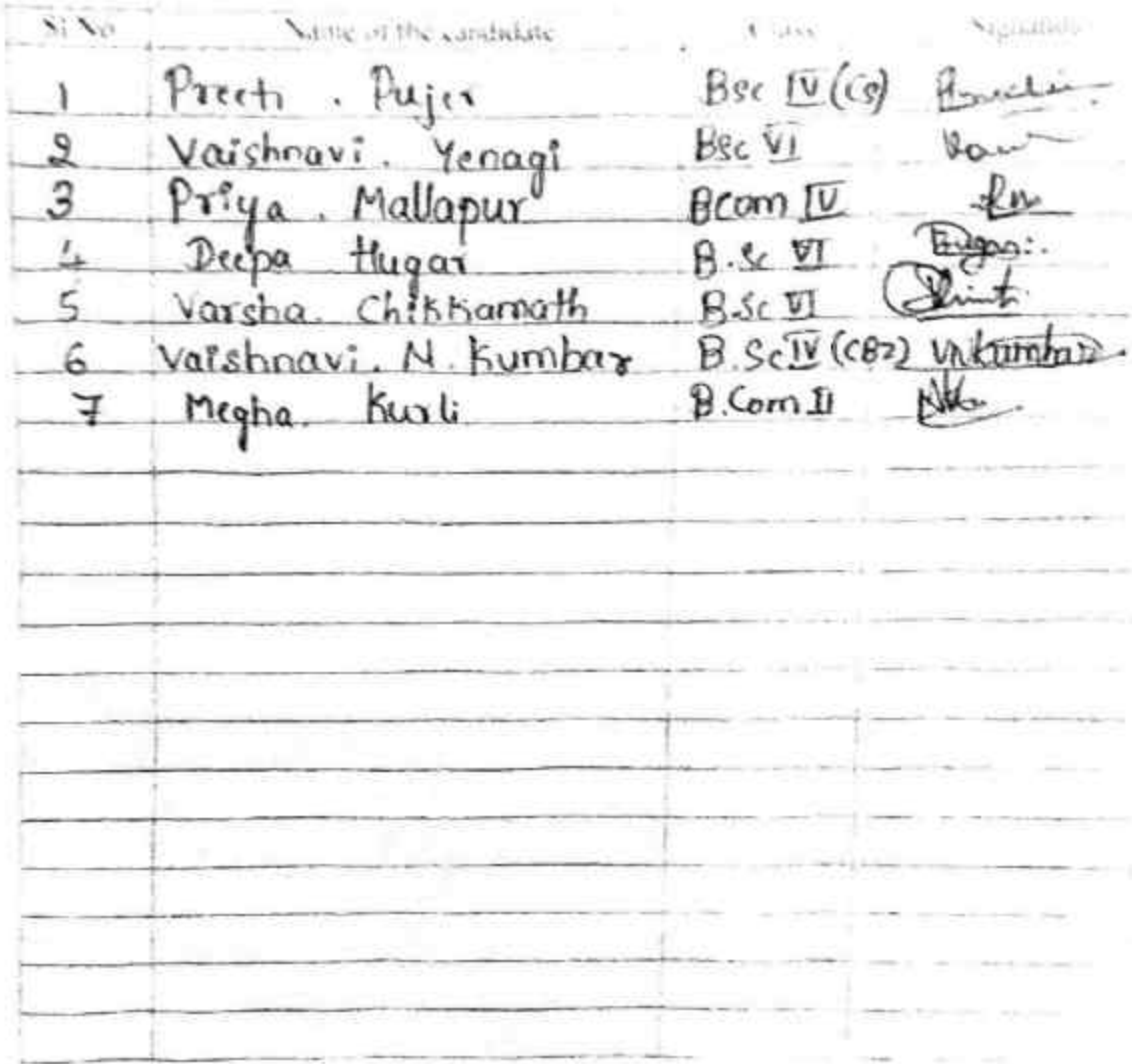 Sl No Name of the candidate Class Signature
1 Preeti . Pujer Bsc IV (CS)
2 Vaishnavi . Yenagi Bsc VI
3 Priya . Mallapur Bcom IV
4 Deepa Hugar B.Sc VI Hugar.
5 Varsha. Chikkamath B.Sc VI
6 Vaishnavi. N. Kumbar B.Sc IV (CBZ) VNKumbar.
7 Megha. Kurli B.Com II